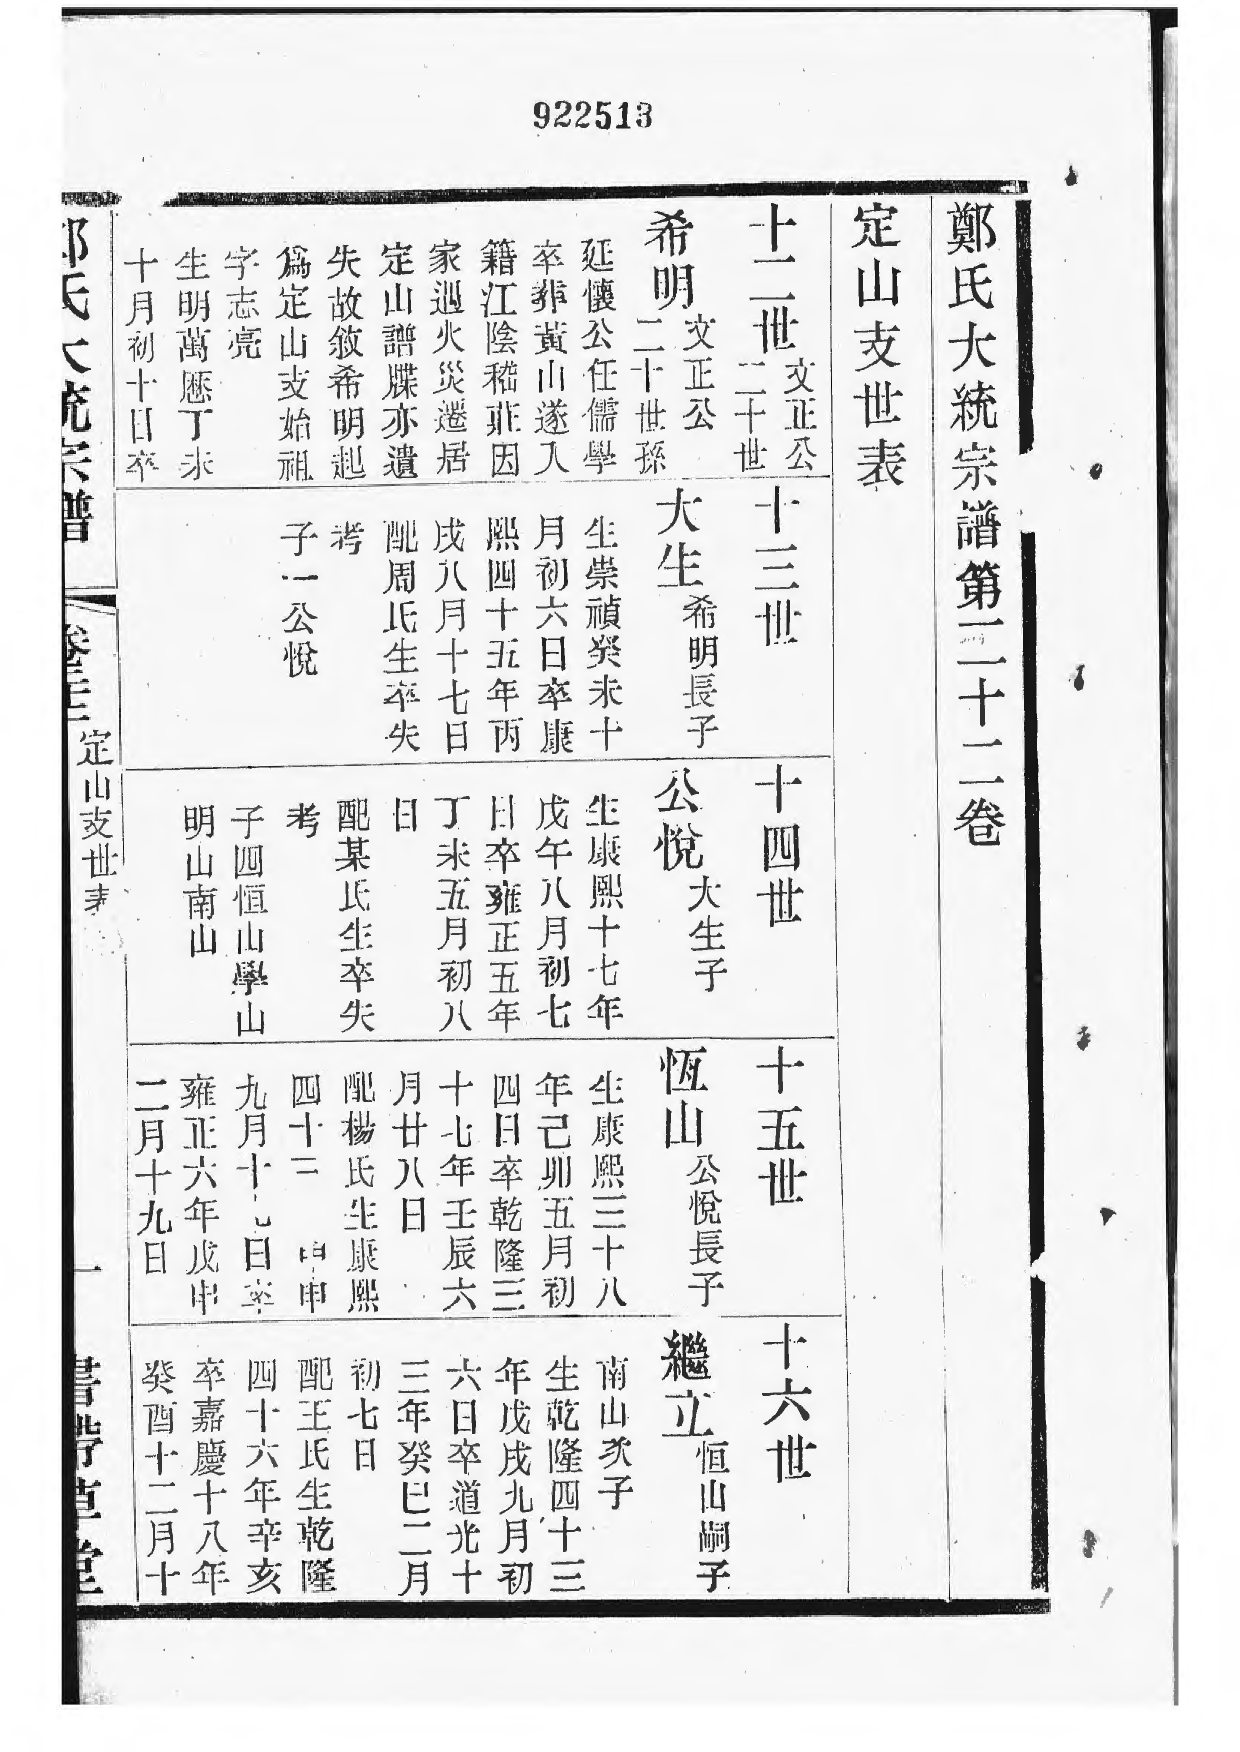 922513
鄭氏大統宗譜第二十二卷
定山支世表
十二世
文正公
二十世
希明
文正公
二十世孫
延懷公任儒學
卒葬黃山遂入
籍江陰稽莊因
家遇火災遷居
定山譜牒亦遺
失故敘希明起
爲定山支始祖
字志亮
生明萬曆丁未
十月初十日卒
十三世
大生
希明長子
生崇禎癸未十
月初六日卒康
熙四十五年丙
戌八月十七日
配周氏生卒失
考
子一公悅
十四世
公悅
大生子
生康熙十七年
戊午八月初七
日卒雍正五年
丁未五月初八
日
配某氏生卒失
考
子四恒山學山
明山南山
十五世
恆山
公悅長子
生康熙三十八
年己卯五月初
四日卒乾隆三
十七年壬辰六
月廿八日
配楊氏生康熙
四十三 甲申
九月十七日卒
雍正六年戊申
二月十九日
十六世
繼立
恒山嗣子
南山次子
生乾隆四十三
年戊戌九月初
六日卒道光十
三年癸巳二月
初七日
配王氏生乾隆
四十六年辛亥
卒嘉慶十八年
癸酉十二月十
鄭氏大統宗譜
定山支世表
一
書帶草堂